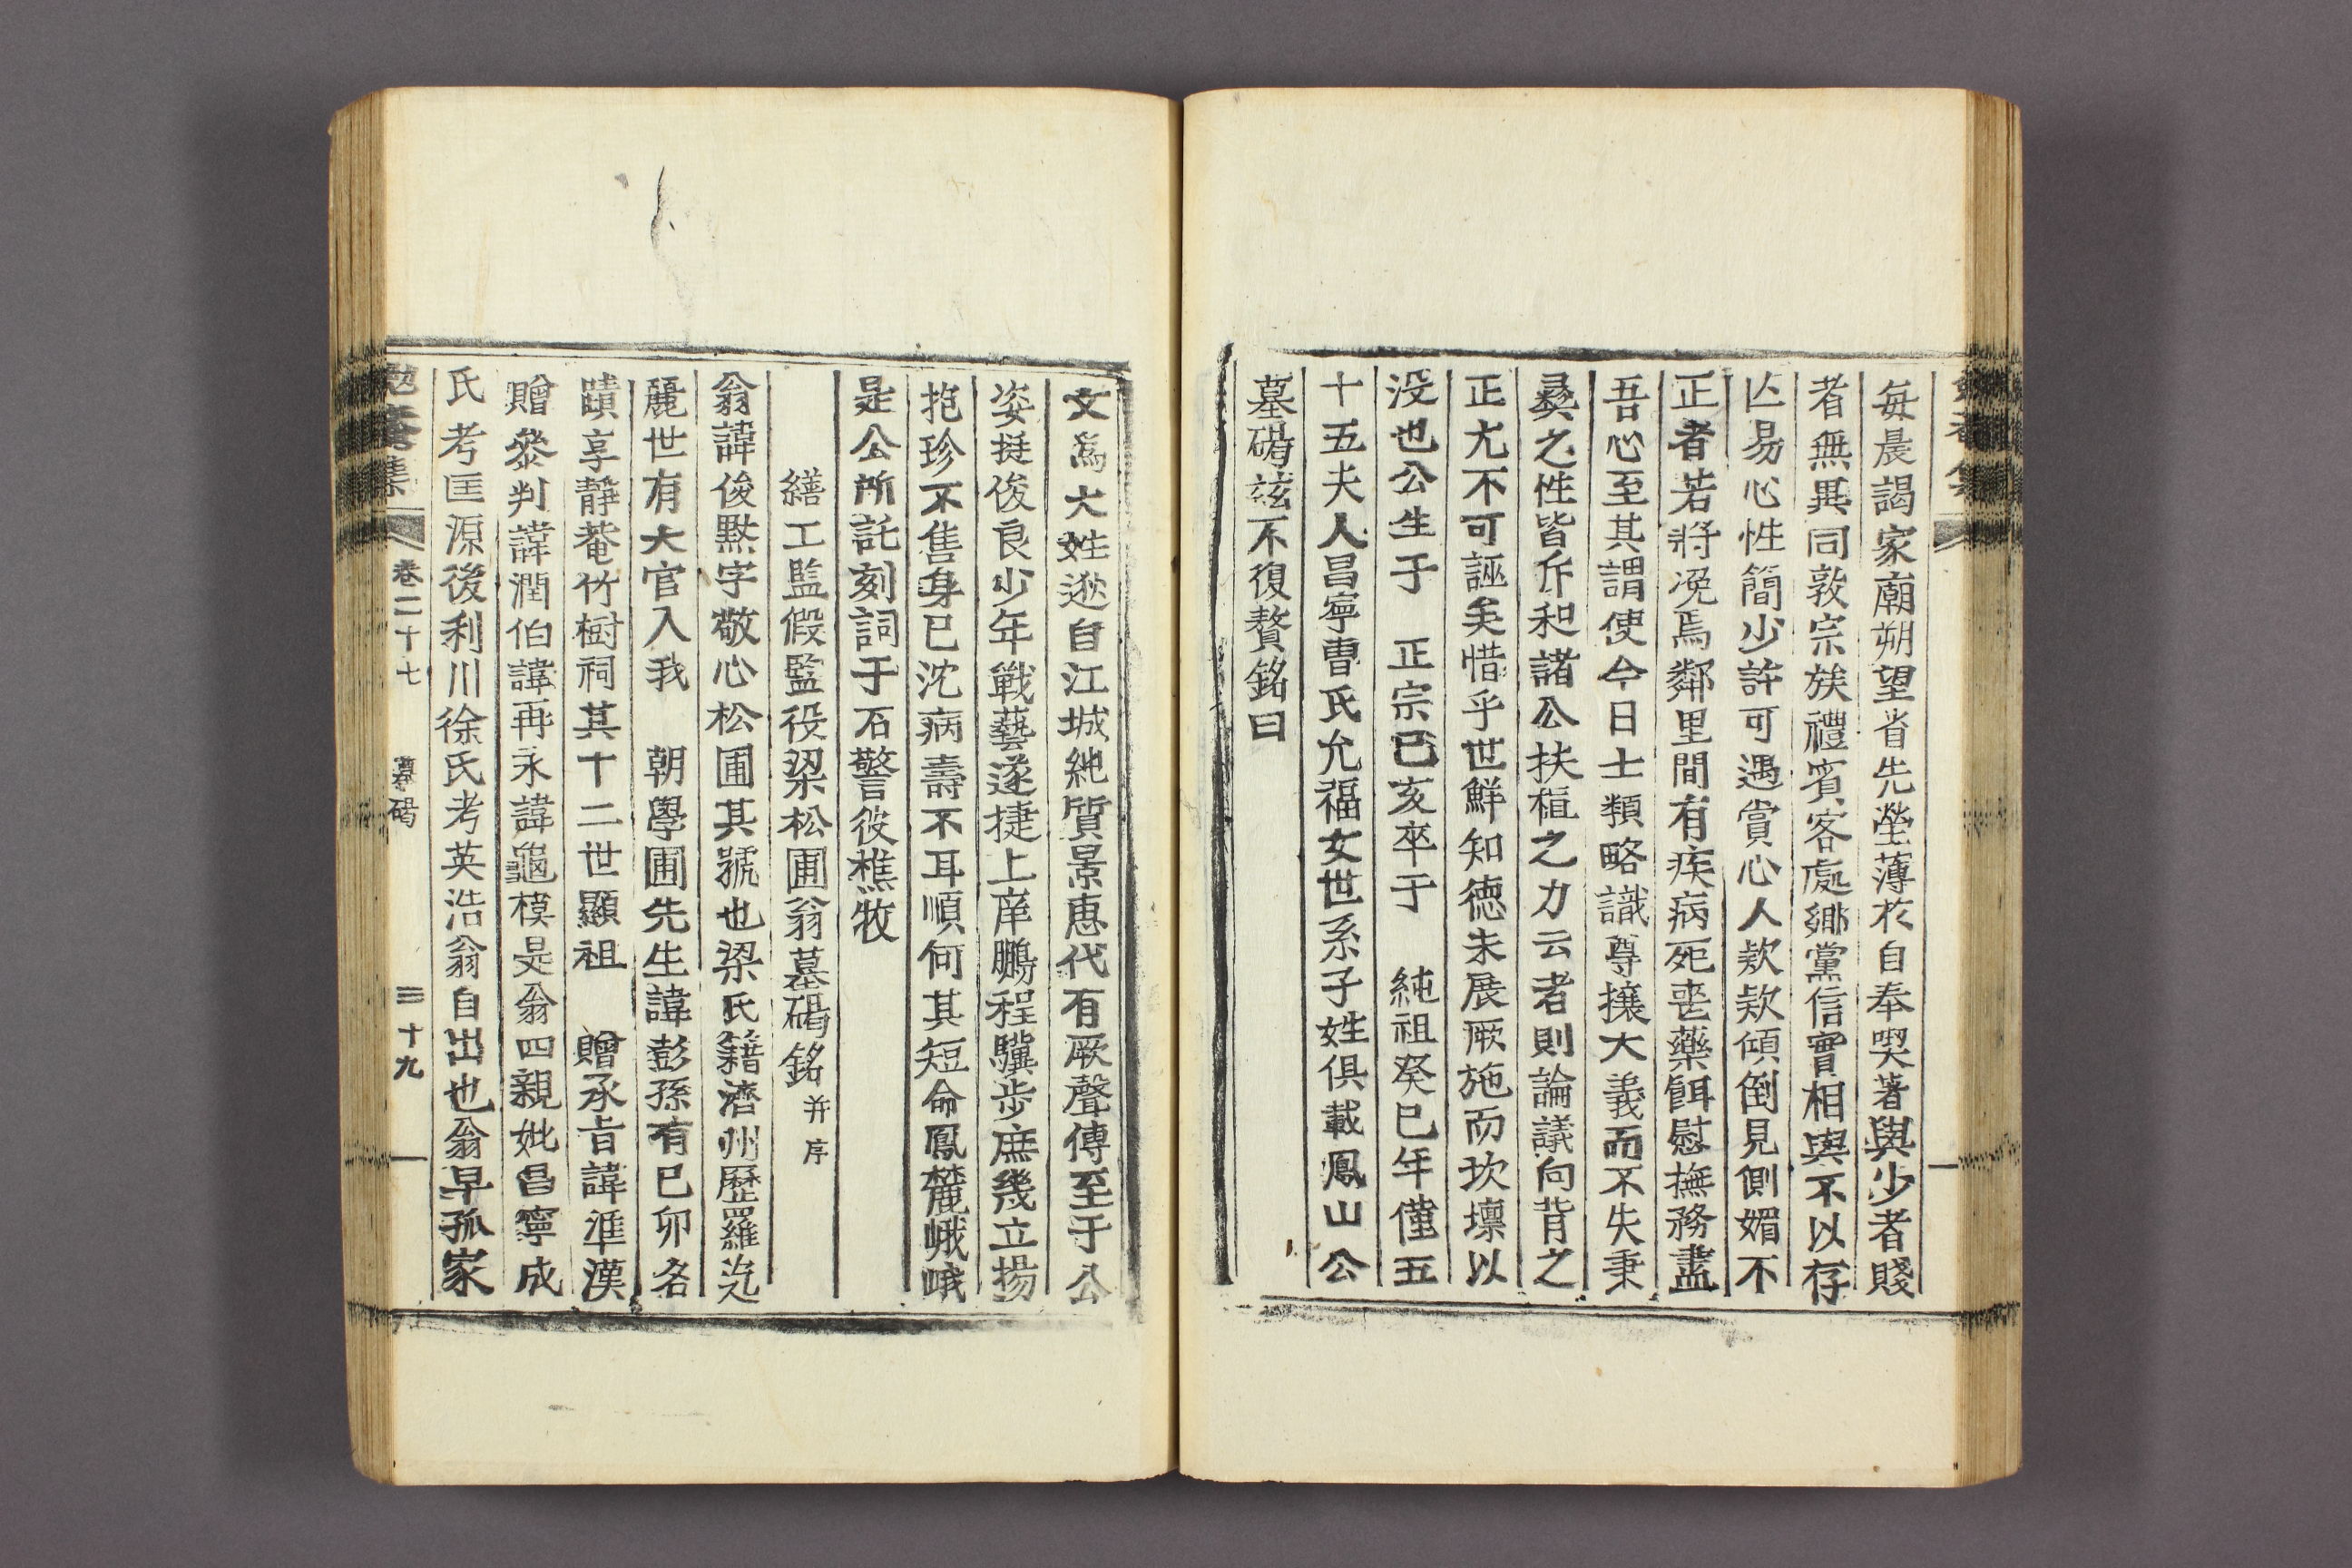 每晨謁家廟朔望省先塋薄於自奉喫著與少者賤
者無異同敦宗族禮賓客處鄉黨信實相與不以存
亾易心性簡少許可遇賞心人欵欵傾倒見側媚不
正者若將凂焉鄰里間有疾病死喪藥餌慰撫務盡
吾心至其謂使今日士類略識尊攘大義而不失秉
彛之性皆斥和諸公扶植之力云者則論議向背之
正尤不可誣矣惜乎世鮮知德未展厥施而坎壈以
没也公生于 正宗己亥卒于 純祖癸巳年僅五
十五夫人昌寧曹氏允福女世系子姓俱載鳳山公
墓碣玆不復贅銘曰
文爲大姓逖自江城純質景惠代有厥聲傳至于公
姿挺俊良少年戰藝遂捷上庠鵬程驥步庶幾立揚
抱珍不售身已沈病壽不耳順何其短命鳳麓峨峨
是公所託刻詞于石警彼樵牧
繕工監假監役梁松圃翁墓碣銘 并序
翁諱俊黙字敬心松圃其號也梁氏籍濟州歷羅迄
麗世有大官入我 朝學圃先生諱彭孫有己卯名
蹟享靜菴竹樹祠其十二世顯祖 贈承旨諱準漢
贈叅判諱潤伯諱再永諱龜模是翁四親妣昌寧成
氏考匡源後利川徐氏考英浩翁自出也翁早孤家
勉菴集 卷二十七 墓碣 三十九